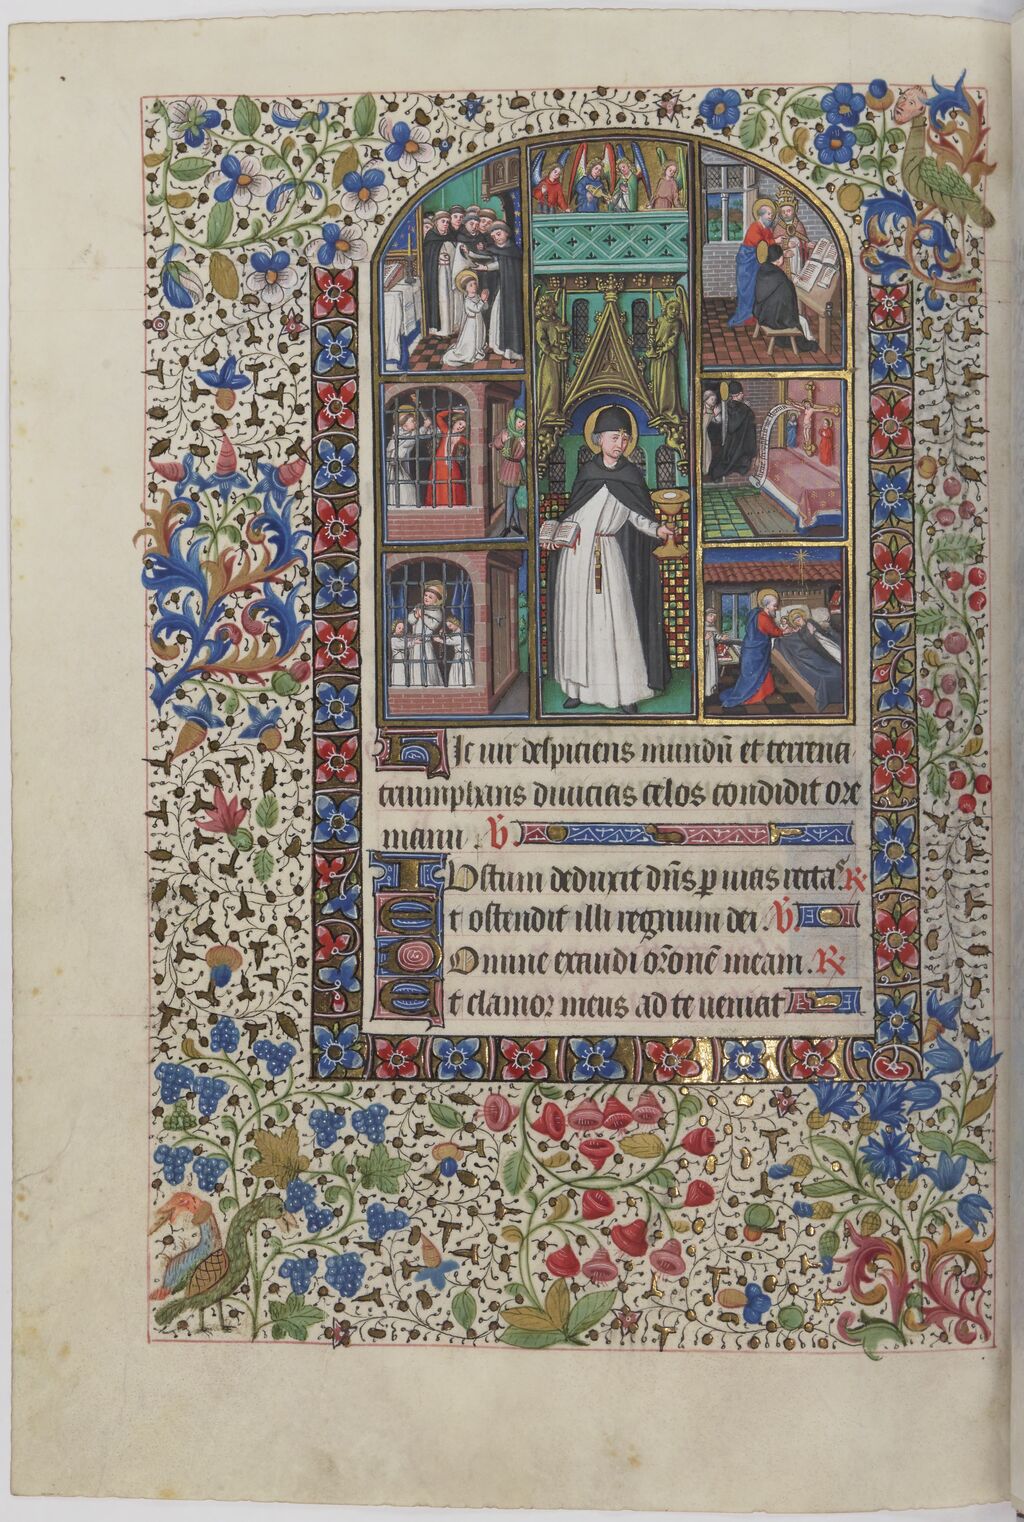 Hic uir despiciens mundū et terrena
triumphans diuicias celos condidit ore
manu. V̄
Iustum deduxit dn̄s p uias rectas R
Et ostendit illi regnum dei. V̄
Domine exaudi or̄onē meam. R
Et clamor meus ad te ueniat